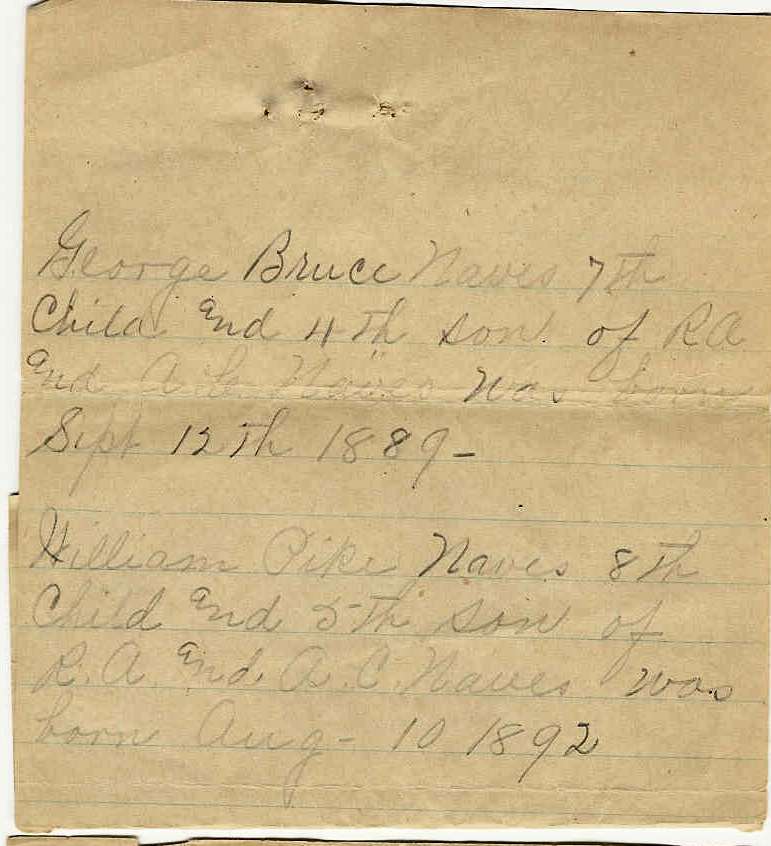 George Bruce Naves 7th
Child and 4th son of R A
and A C. Naves was born
Sept 12th 1889-
William Pike Naves 8th
Child and 5th son of
R. A and A. C. Naves was
born Aug- 10 1892